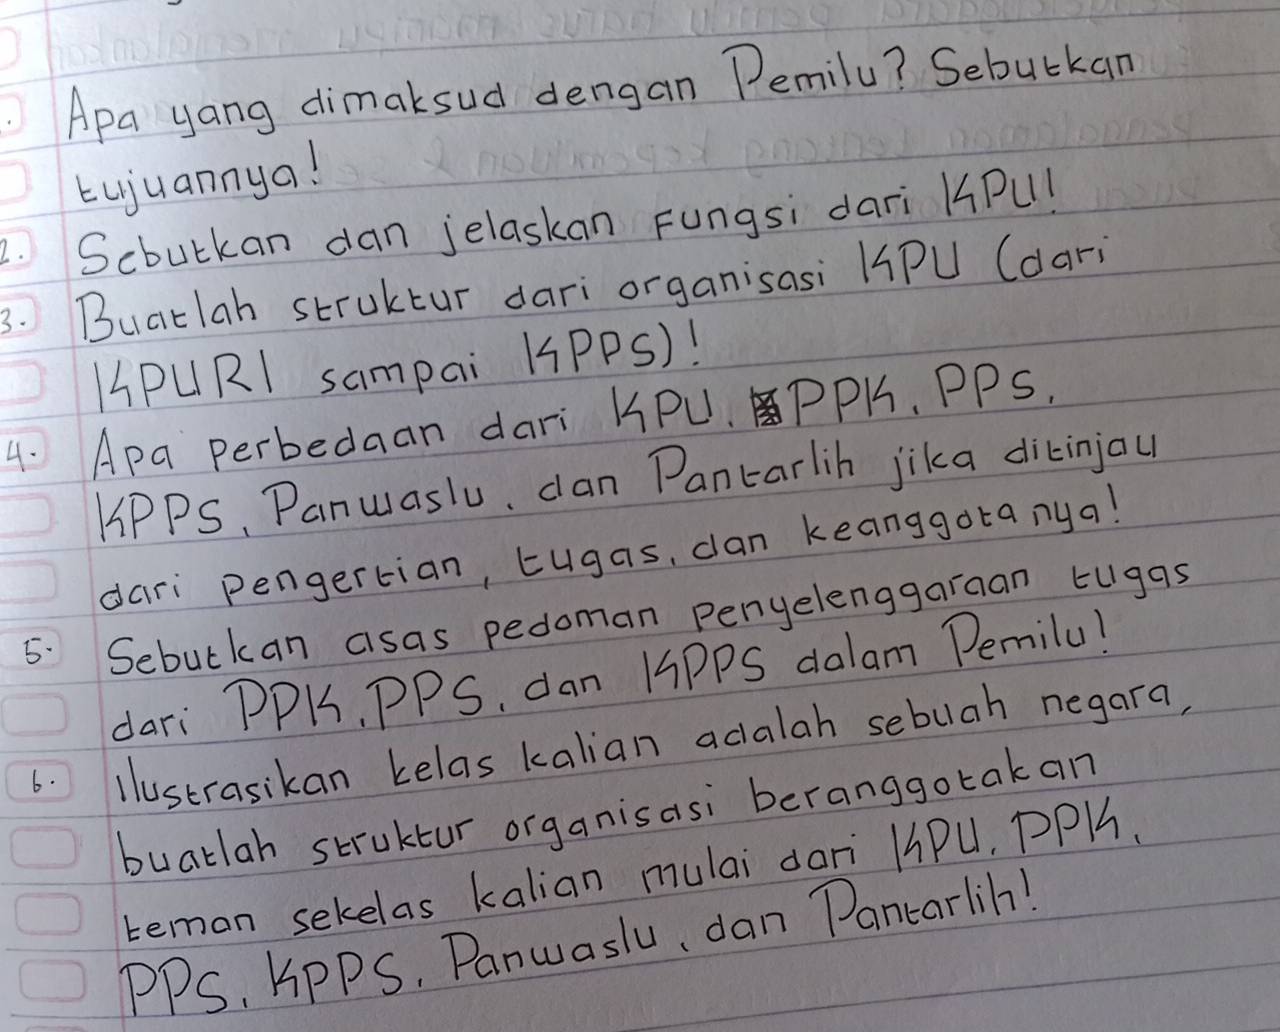 1. Apa yang dimaksud dengan Pemilu? Sebutkan
tujuannya!
2. Sebutkan dan jelaskan Fungsi dari KPU!
3. Buatlah struktur dari organisasi KPU (dari
KPURI sampai KPPS)!
4. Apa perbedaan dari KPU, PPK, PPS,
KPPS, Panwaslu, dan Pantarlih jika ditinjau
dari pengertian, tugas, dan keanggotanya!
5. Sebutkan asas pedoman penyelenggaraan tugas
dari PPK, PPS, dan KPPS dalam Pemilu!
6. Ilustrasikan kelas kalian adalah sebuah negara,
buatlah struktur organisasi beranggotakan
teman sekelas kalian mulai dari KPU, PPK,
PPS, KPPS, Panwaslu, dan Pantarlih!